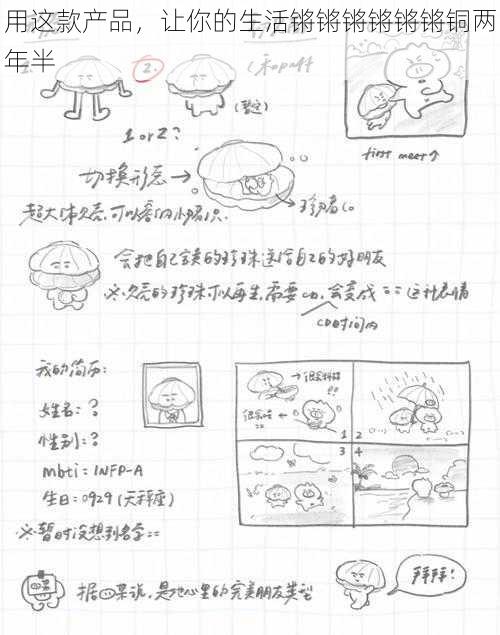 用这款产品，让你的生活锵锵锵锵锵锵铜两
年半
1.
2.
(暂定)
1 or 2?
first meet↑
切换形态→
→珍珠
超大体贝壳，可以容
会把自己宝贵的珍珠送给自己的好朋友
※贝壳的珍珠可以再生，需要cd，会变成 = = 这种表情
cd时间内
我的简历：
姓名：？
性别：？
mbti：INFP-A
生日：0929 (天秤座)
※暂时没想到名字==
→很会照顾
!!
很会
1
2
3
4
据四某说，是他心里的完美朋友类型
拜拜!